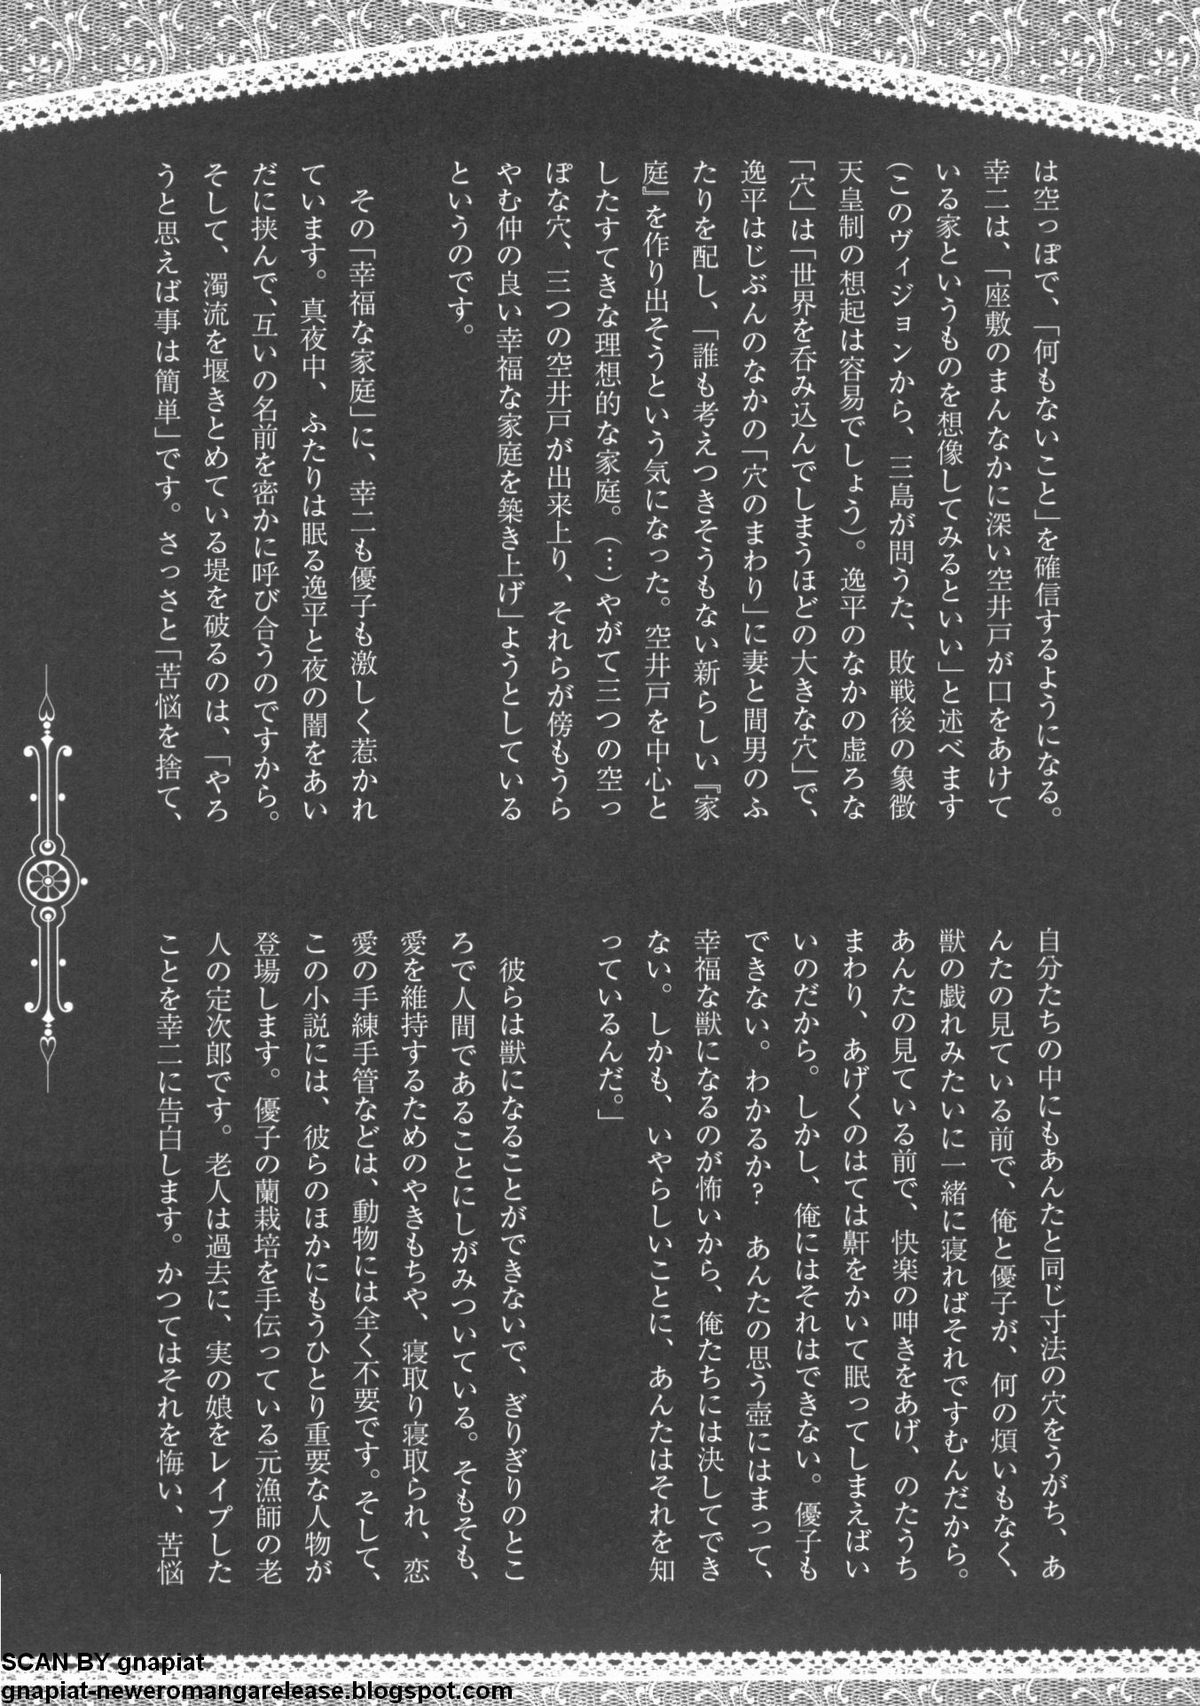 は空っぽで、「何もないこと」を確信するようになる。
幸二は、「座敷のまんなかに深い空井戸が口をあけて
いる家というものを想像してみるといい」と述べます
（このヴィジョンから、三島が問うた、敗戦後の象徴
天皇制の想起は容易でしょう）。逸平のなかの虚ろな
「穴」は「世界を呑み込んでしまうほどの大きな穴」で、
逸平はじぶんのなかの「穴のまわり」に妻と間男のふ
たりを配し、「誰も考えつきそうもない新らしい『家
庭』を作り出そうという気になった。空井戸を中心と
したすてきな理想的な家庭。（…）やがて三つの空っ
ぽな穴、三つの空井戸が出来上り、それらが傍もうら
やむ仲の良い幸福な家庭を築き上げ」ようとしている
というのです。
その「幸福な家庭」に、幸二も優子も激しく惹かれ
ています。真夜中、ふたりは眠る逸平と夜の闇をあい
だに挟んで、互いの名前を密かに呼び合うのですから。
そして、濁流を堰きとめている堤を破るのは、「やろ
うと思えば事は簡単」です。さっさと「苦悩を捨て、
自分たちの中にもあんたと同じ寸法の穴をうがち、あ
んたの見ている前で、俺と優子が、何の煩いもなく、
獣の戯れみたいに一緒に寝ればそれですむんだから。
あんたの見ている前で、快楽の呻きをあげ、のたうち
まわり、あげくのはては鼾をかいて眠ってしまえばい
いのだから。しかし、俺にはそれはできない。優子も
できない。わかるか？　あんたの思う壺にはまって、
幸福な獣になるのが怖いから、俺たちには決してでき
ない。しかも、いやらしいことに、あんたはそれを知
っているんだ。」
彼らは獣になることができないで、ぎりぎりのとこ
ろで人間であることにしがみついている。そもそも、
愛を維持するためのやきもちや、寝取り寝取られ、恋
愛の手練手管などは、動物には全く不要です。そして、
この小説には、彼らのほかにもうひとり重要な人物が
登場します。優子の蘭栽培を手伝っている元漁師の老
人の定次郎です。老人は過去に、実の娘をレイプした
ことを幸二に告白します。かつてはそれを悔い、苦悩
SCAN BY gnapiat
gnapiat-neweromangarelease.blogspot.com